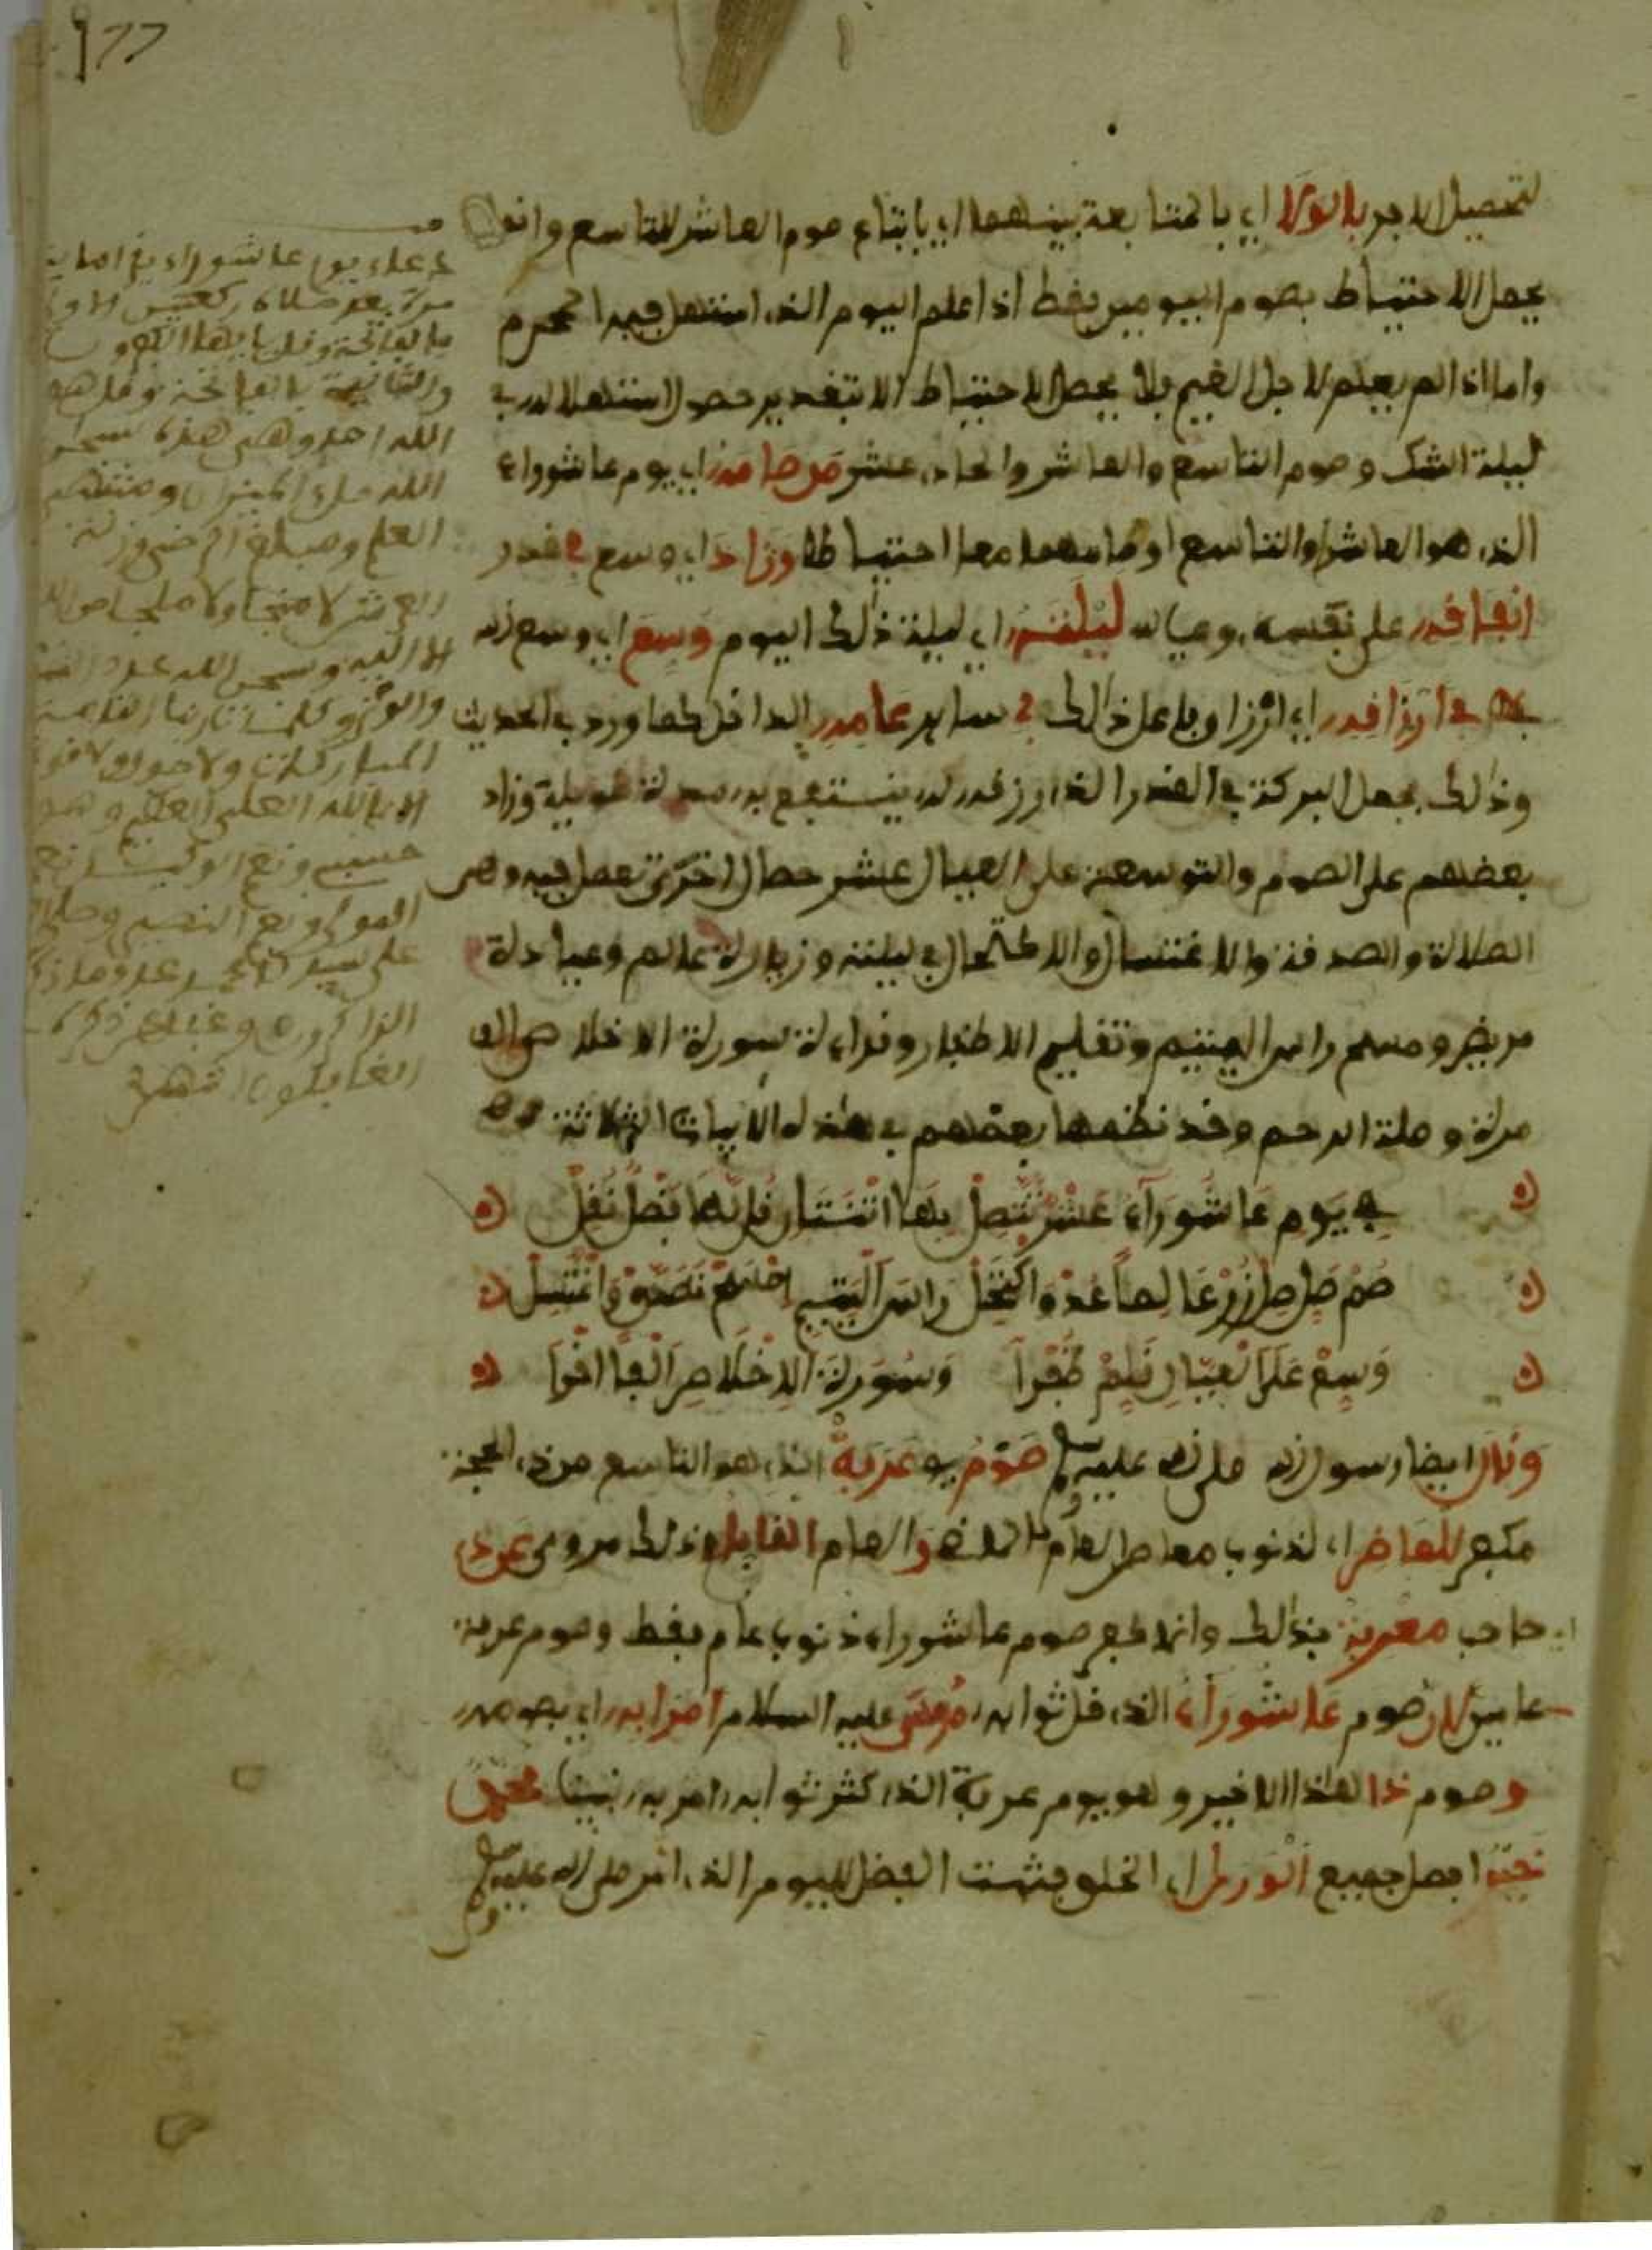 لتحصيل الاجر بالولا اي بالمتابعة بينهما اي باتباع صوم العاشر للتاسع وانما
يحصل الاحتياط بصوم اليومين فقط اذا علم اليوم الذي استهل فيه المحرم
واما اذا لم يعلم لاجل الغيم فلا يحصل الاحتياط الا بتقدير حصول استهلاله في
ليلة الشك وصوم التاسع والعاشر والحادي عشر من صامه اي يوم عاشوراء
الذي هو العاشر او التاسع او صامهما معا احتياطا وزاد اي وسع في قدر
انفاقه على نفسه وعياله ليلته اي ليلة ذلك اليوم وسع اي وسع الله
في ارزاقه اي ارزاق فاعل ذالك في ساير عامه الداخل كما ورد في الحديث
وذلك بجعل البركة في القدر الذي رزقه له ينتفع به مدة طويلة وزاد
بعضهم على الصوم والتوسعة على العيال عشر خصال اخرى تفعل فيه وهي
الصلاة والصدقة والاغتسال والاكتحال في ليلته وزيارة عالم وعيادة
مريض ومسح راس اليتيم وتقليم الاظفار وقراءة سورة الاخلاص الف
مرة وصلة الرحم وقد نظمها بعضهم في هذه الابيات الثلاثة
في يوم عاشوراء عشر تتصل بها اثنتان فلها فضل نقل
صم صل صل زر عالما عد واكتحل راس اليتيم امسح تصدق واغتسل
وسع على العيال قلم ظفرا وسورة الاخلاص الفا اقرا
وقال ايضا رسول الله صلى الله عليه وسلم صوم يوم عرفة الذي هو التاسع من ذي الحجة
مكفر للماض اي لذنوب معاصي العام الماضي والعام القابل وذلك مروي عن ذي
صاحب معرفة بذالك وانما كفر صوم عاشوراء ذنوب عام فقط وصوم عرفة
عامين لان صوم عاشوراء الذي قل ثوابه موسى عليه السلام امرا به اي بصومه
وصوم ذا هذا الاخير وهو يوم عرفة الذي كثر ثوابه امر به نبينا محمد
افضل جميع الورى اي الخلق فثبت الفضل لليوم الذي امر صلى الله عليه وسلم
دعاء يوم عاشوراء
مرة بعد صلاة ركعتين
بالفاتحة وقل يا ايها الكفرون
والثانية بالفاتحة وقل هو
الله احد وهي هذه سبحن
الله ملء الميزان ومنتهى
العلم ومبلغ الرضى وزنة
العرش لا منجا ولا ملجا من الله
الا اليه وسبحن الله عدد الشفع
والوتر وكلمات ربنا التامة
المباركات ولا حول ولا قوة
الا بالله العلي العظيم وهو
حسبي ونعم الوكيل نعم
المولى ونعم النصير وصلى الله
على سيدنا محمد عدد ما ذكره
الذاكرون وغفل عن ذكره
الغافلون انتهى